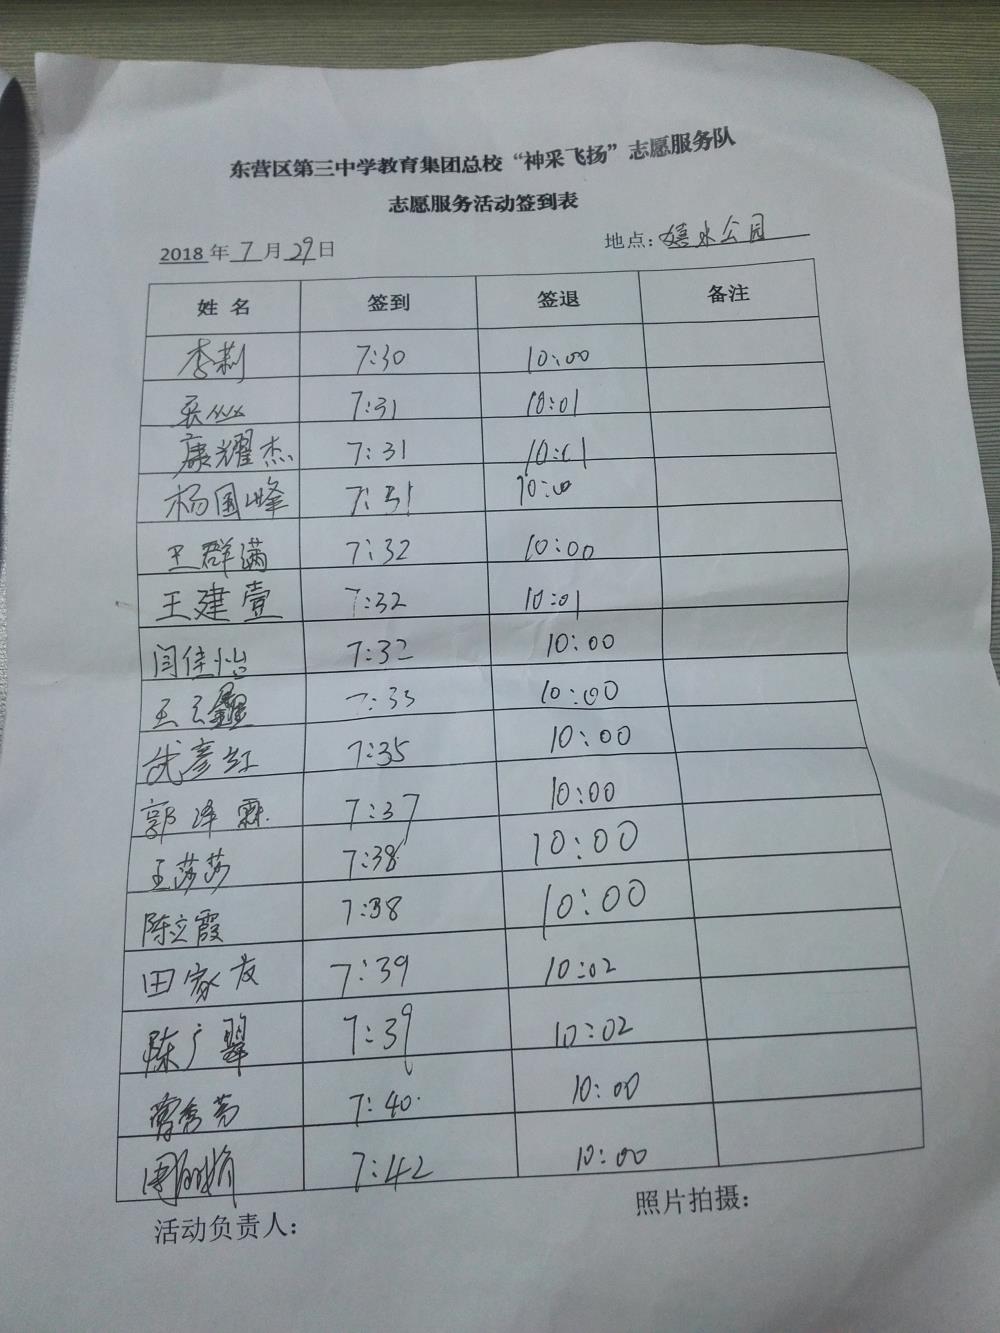 东营区第三中学教育集团总校“神采飞扬”志愿服务队
志愿服务活动签到表
2018年7月29日 地点：嬉水公园
姓名 签到 签退 备注
李莉 7:30 10:00
7:31 10:01
康耀杰 7:31 10:01
杨国峰 7:31 10:00
王群满 7:32 10:00
王建壹 7:32 10:01
闫佳怡 7:32 10:00
王 7:33 10:00
武彦红 7:35 10:00
郭泽霖 7:37 10:00
王莎莎 7:38 10:00
陈立霞 7:38 10:00
田家友 7:39 10:02
陈广翠 7:39 10:02
7:40 10:00
7:42 10:00
活动负责人： 照片拍摄：